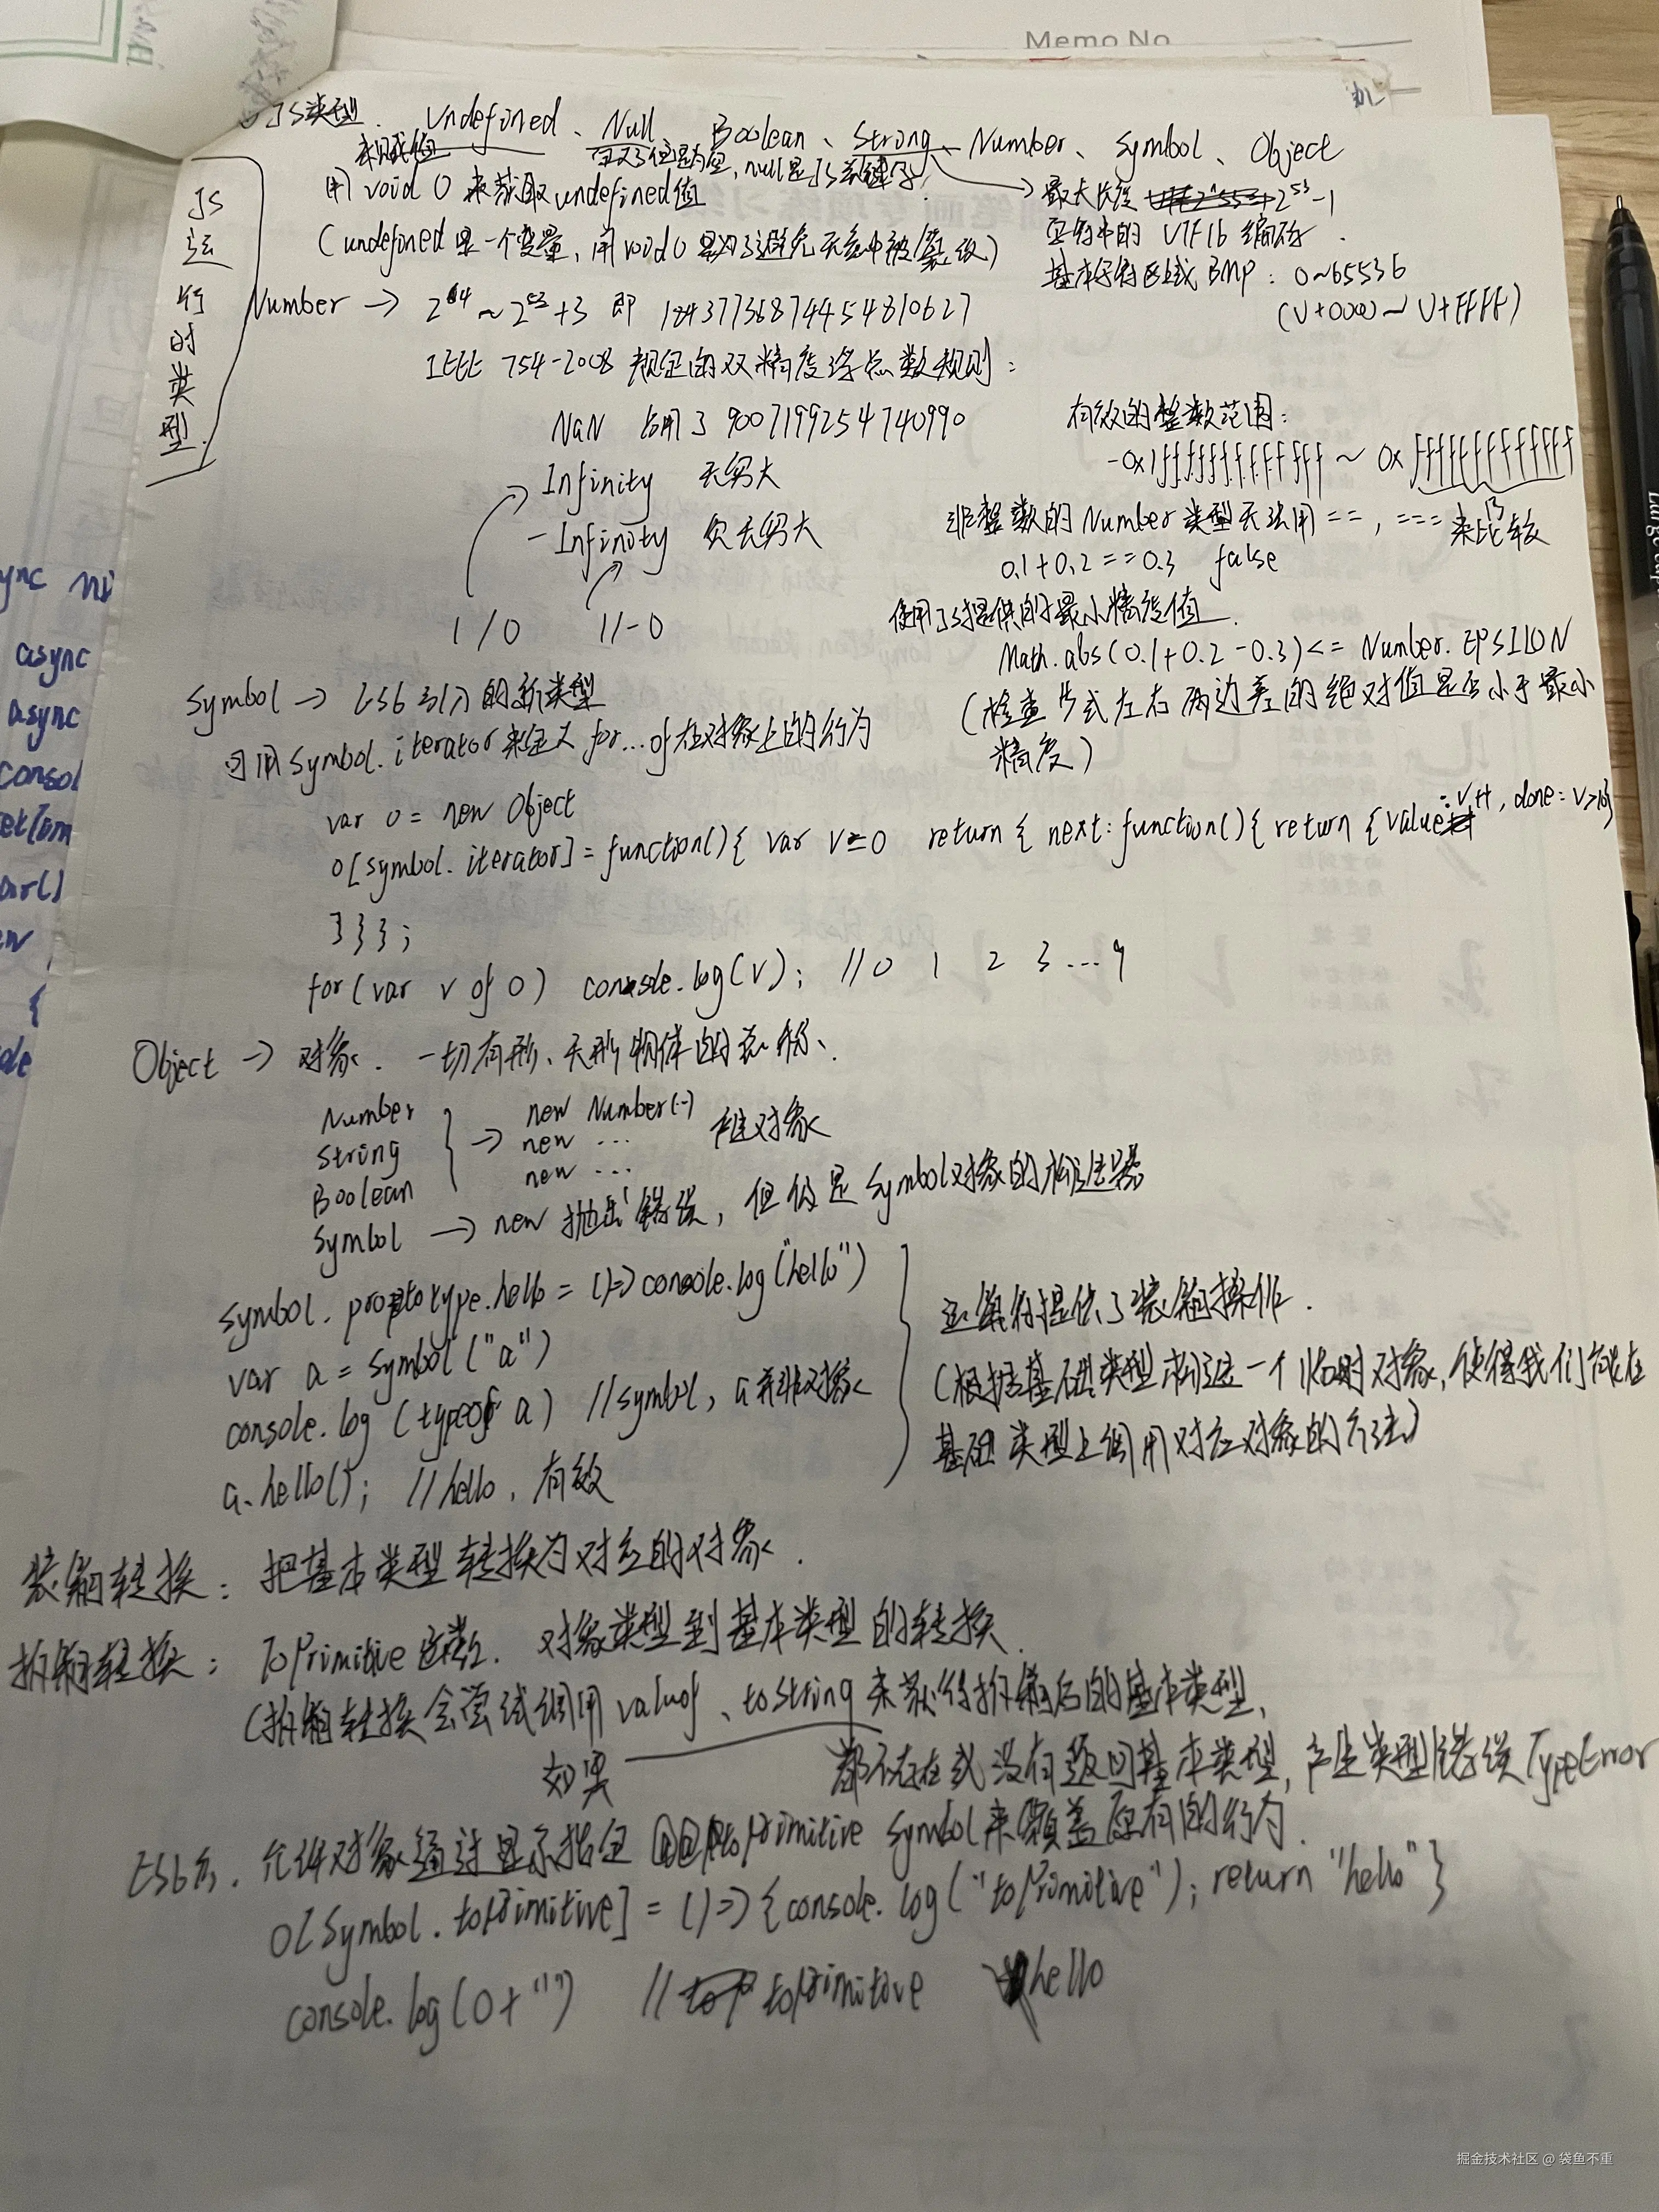 Memo No
JS运行时类型
JS类型. Undefined、Null、Boolean、String、Number、Symbol、Object
未赋值
定义了但是为空, null是JS关键字
用 void 0 来获取 undefined值
(undefined 是一个变量, 用 void 0 是为了避免无意中被篡改)
最大长度 2^53-1
字符串的 UTF16 编码.
基本字符区域 BMP: 0~65536
(U+0000 ~ U+FFFF)
Number → 2^64 ~ 2^53+3 即 18437736874454810627
IEEE 754-2008 规定的双精度浮点数规则:
NaN 占用了 9007199254740990
Infinity 无穷大
-Infinity 负无穷大
1/0 1/-0
有效的整数范围:
-0x1fffffffffffff ~ 0x fffffffffffff
13
非整数的Number类型无法用 ==, === 来比较
0.1+0.2==0.3 false
使用JS提供的最小精度值.
Math.abs(0.1+0.2-0.3)<= Number.EPSILON
(检查等式左右两边差的绝对值是否小于最小
精度)
Symbol → ES6引入的新类型
可用 Symbol.iterator 来定义 for...of在对象上的行为
var o = new Object
o[symbol.iterator] = function(){ var v=0 return { next: function(){ return {value: v++, done: v>10}
}}};
for(var v of o) console.log(v); //0 1 2 3...9
Object → 对象. 一切有形、无形物体的总称、.
Number
String
Boolean
→ new Number(..)
new ...
new ...
Symbol → new 抛出错误, 但仍是 Symbol对象的构造器
symbol.prototype.hello = ()=>console.log("hello")
var a = symbol("a")
console.log (typeof a) //symbol, a 并非对象
a.hello(); //hello, 有效
运算符提供了装箱操作.
(根据基础类型构造一个临时对象, 使得我们能在
基础类型上调用对应对象的方法)
装箱转换: 把基本类型转换为对应的对象.
拆箱转换: ToPrimitive函数. 对象类型到基本类型的转换.
(拆箱转换会尝试调用 valueOf、toString 来获得拆箱后的基本类型,
如果 都不存在或没有返回基本类型, 产生类型错误 TypeError
ES6后. 允许对象通过显示指定 @@toPrimitive symbol来覆盖原有的行为.
o[Symbol.toPrimitive] = ()=>{console.log("toPrimitive"); return "hello"}
console.log(o+"") // toPrimitive hello
掘金技术社区 @ 袋鱼不重